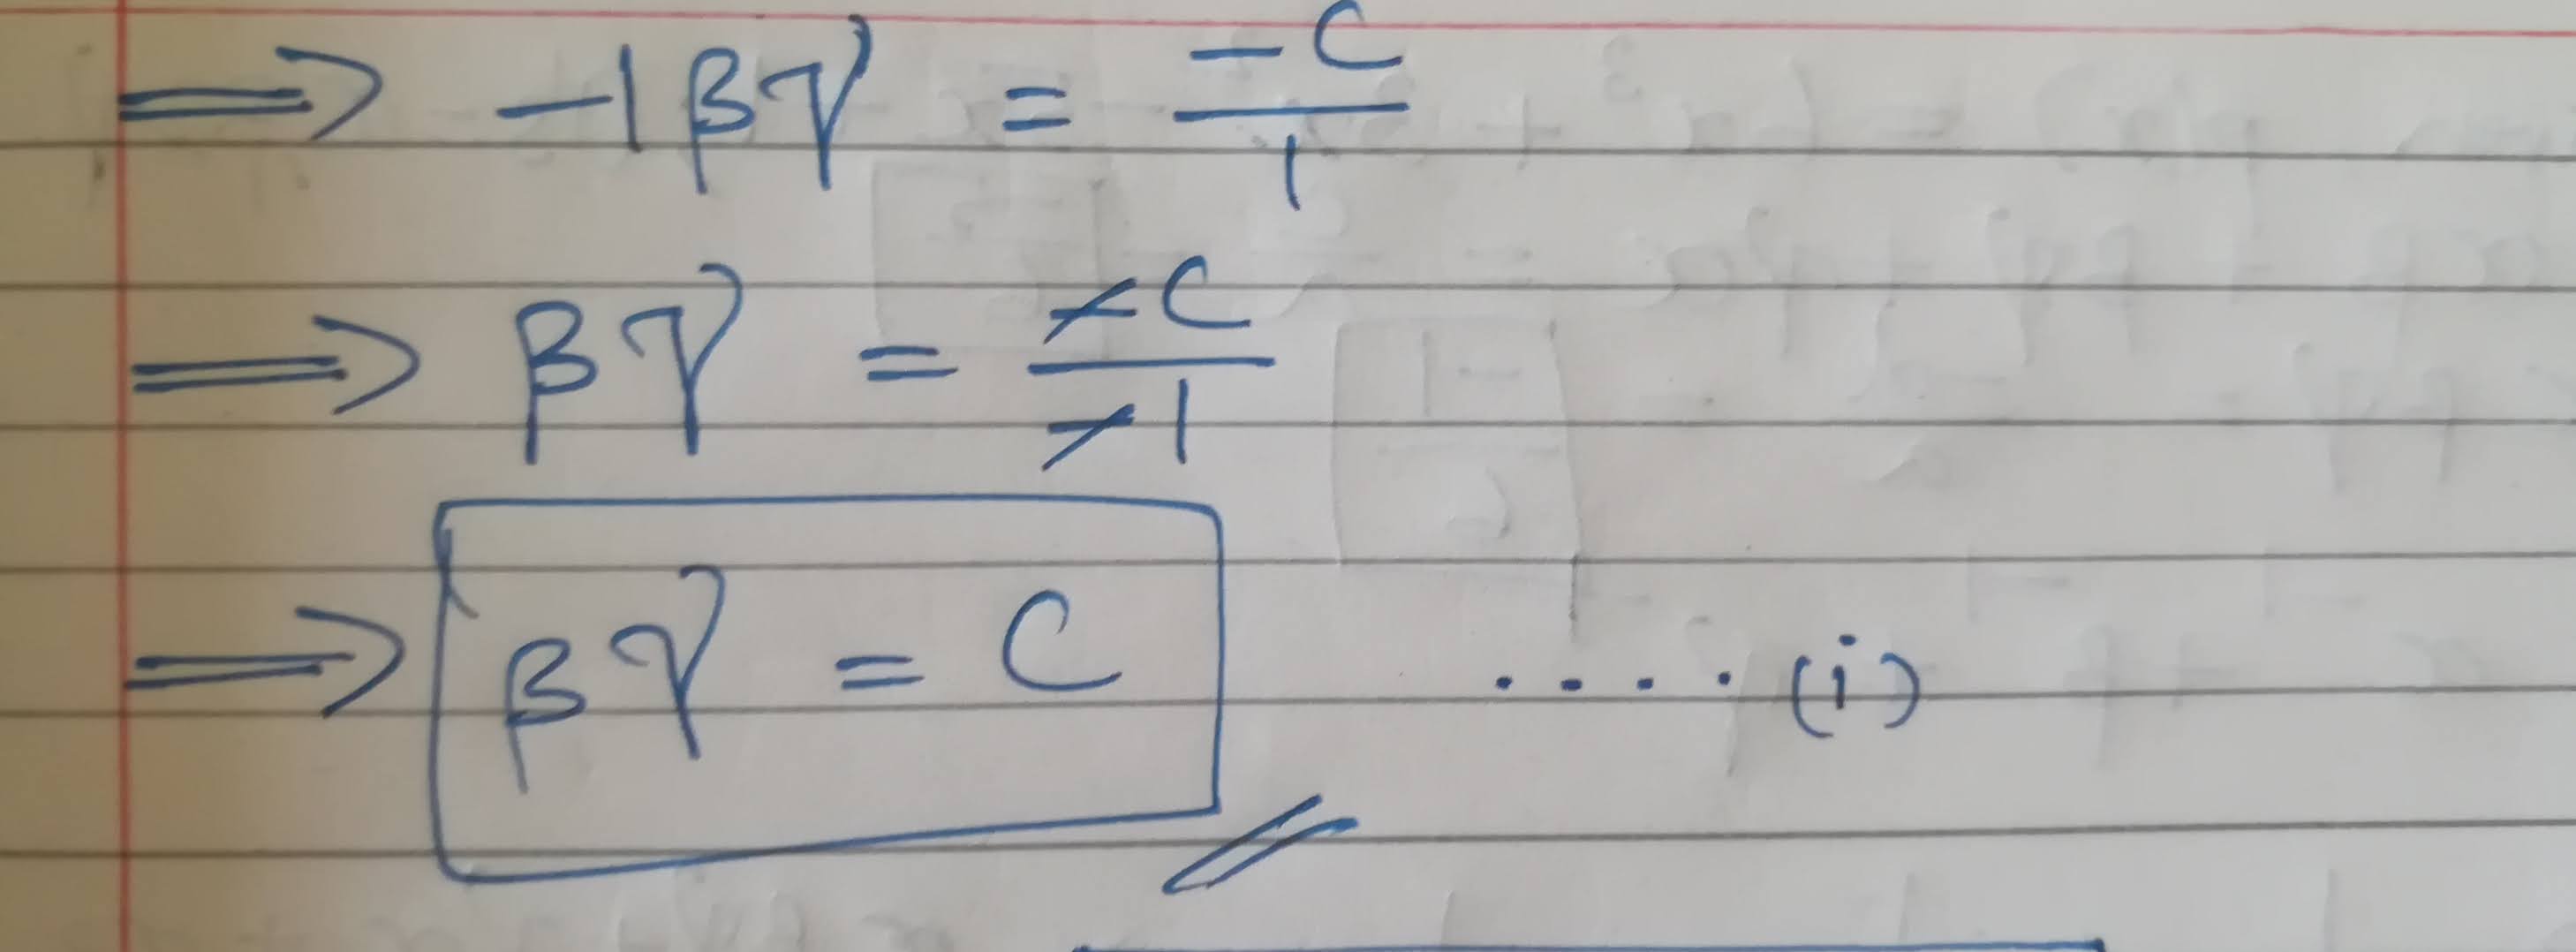 ⇒ -1βγ = -C/1
⇒ βγ = -C/-1
⇒ βγ = C .... (i)